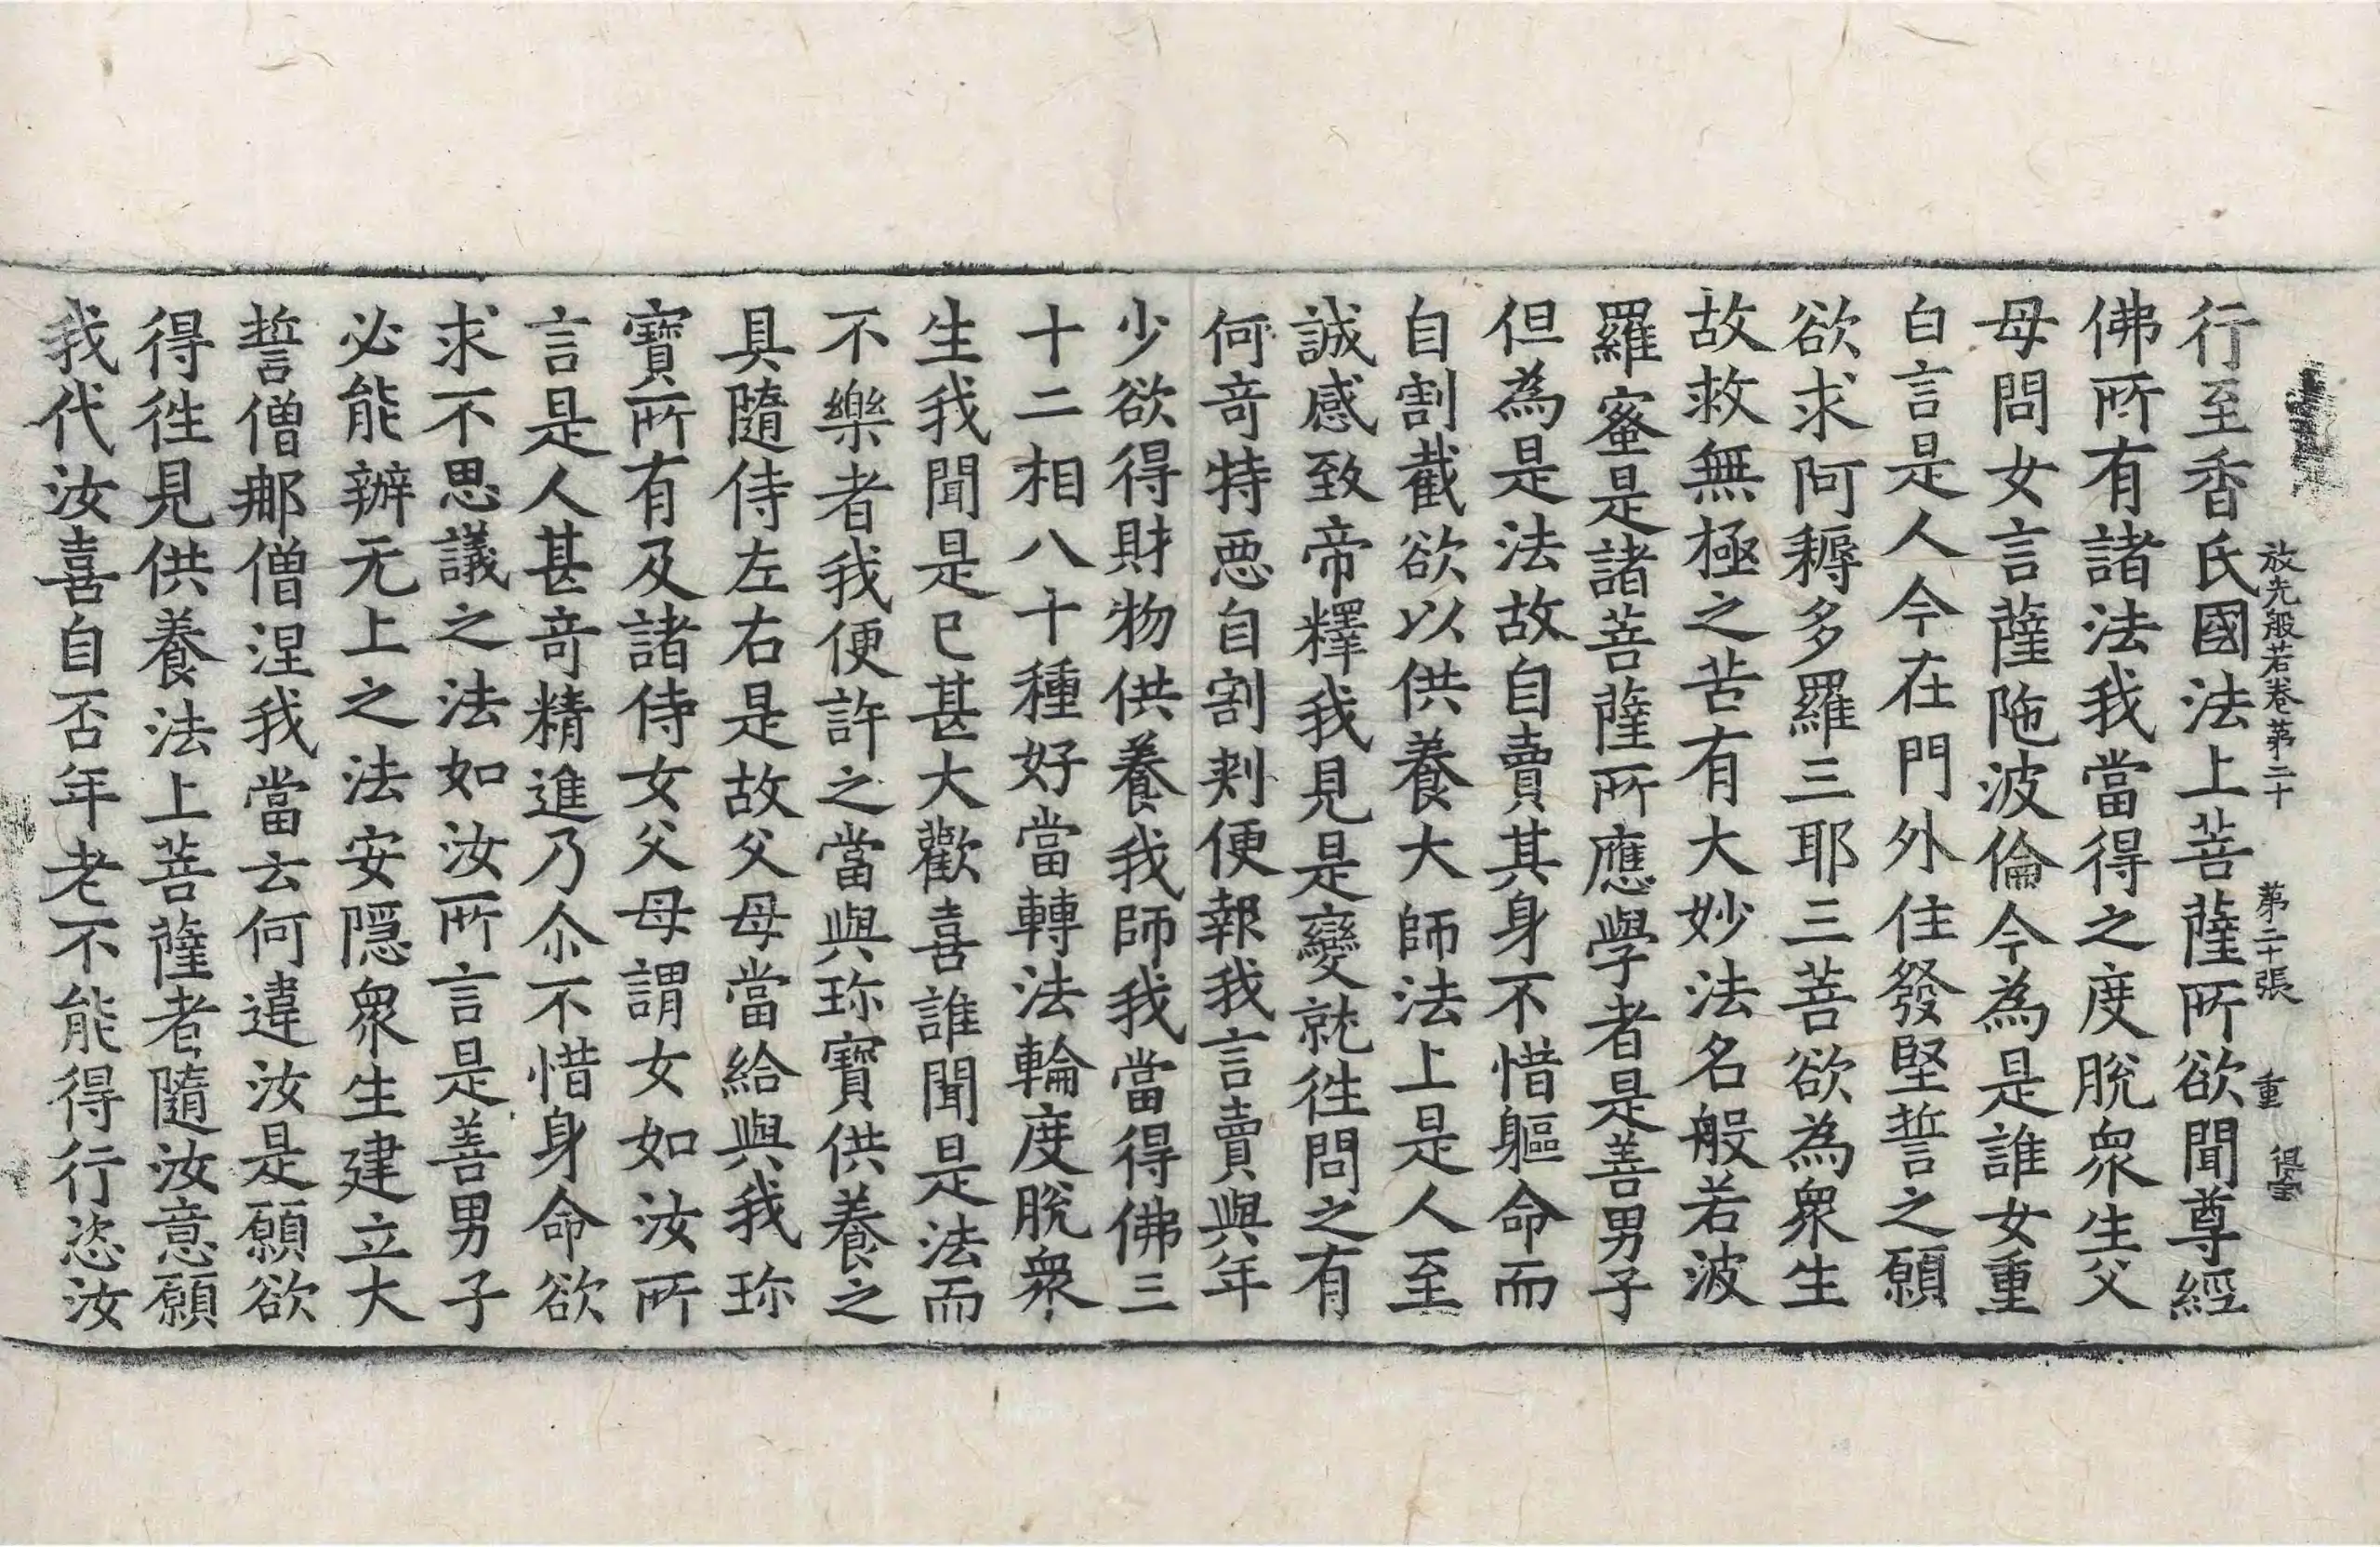 放光般若卷第二十 第二十張 重
行至香氏國法上菩薩所欲聞尊經
佛所有諸法我當得之度脫衆生父
母問女言薩陁波倫今為是誰女重
白言是人今在門外住發堅誓之願
欲求阿耨多羅三耶三菩欲為衆生
故救無極之苦有大妙法名般若波
羅蜜是諸菩薩所應學者是善男子
但為是法故自賣其身不惜軀命而
自割截欲以供養大師法上是人至
誠感致帝釋我見是變就徃問之有
何奇特惡自割剌便報我言賣與年
少欲得財物供養我師我當得佛三
十二相八十種好當轉法輪度脫衆
生我聞是已甚大歡喜誰聞是法而
不樂者我便許之當與珎寶供養之
具隨侍左右是故父母當給與我珎
寶所有及諸侍女父母謂女如汝所
言是人甚奇精進乃尒不惜身命欲
求不思議之法如汝所言是善男子
必能辦无上之法安隱衆生建立大
誓僧那僧涅我當去何違汝是願欲
得徃見供養法上菩薩者隨汝意願
我代汝喜自否年老不能得行恣汝